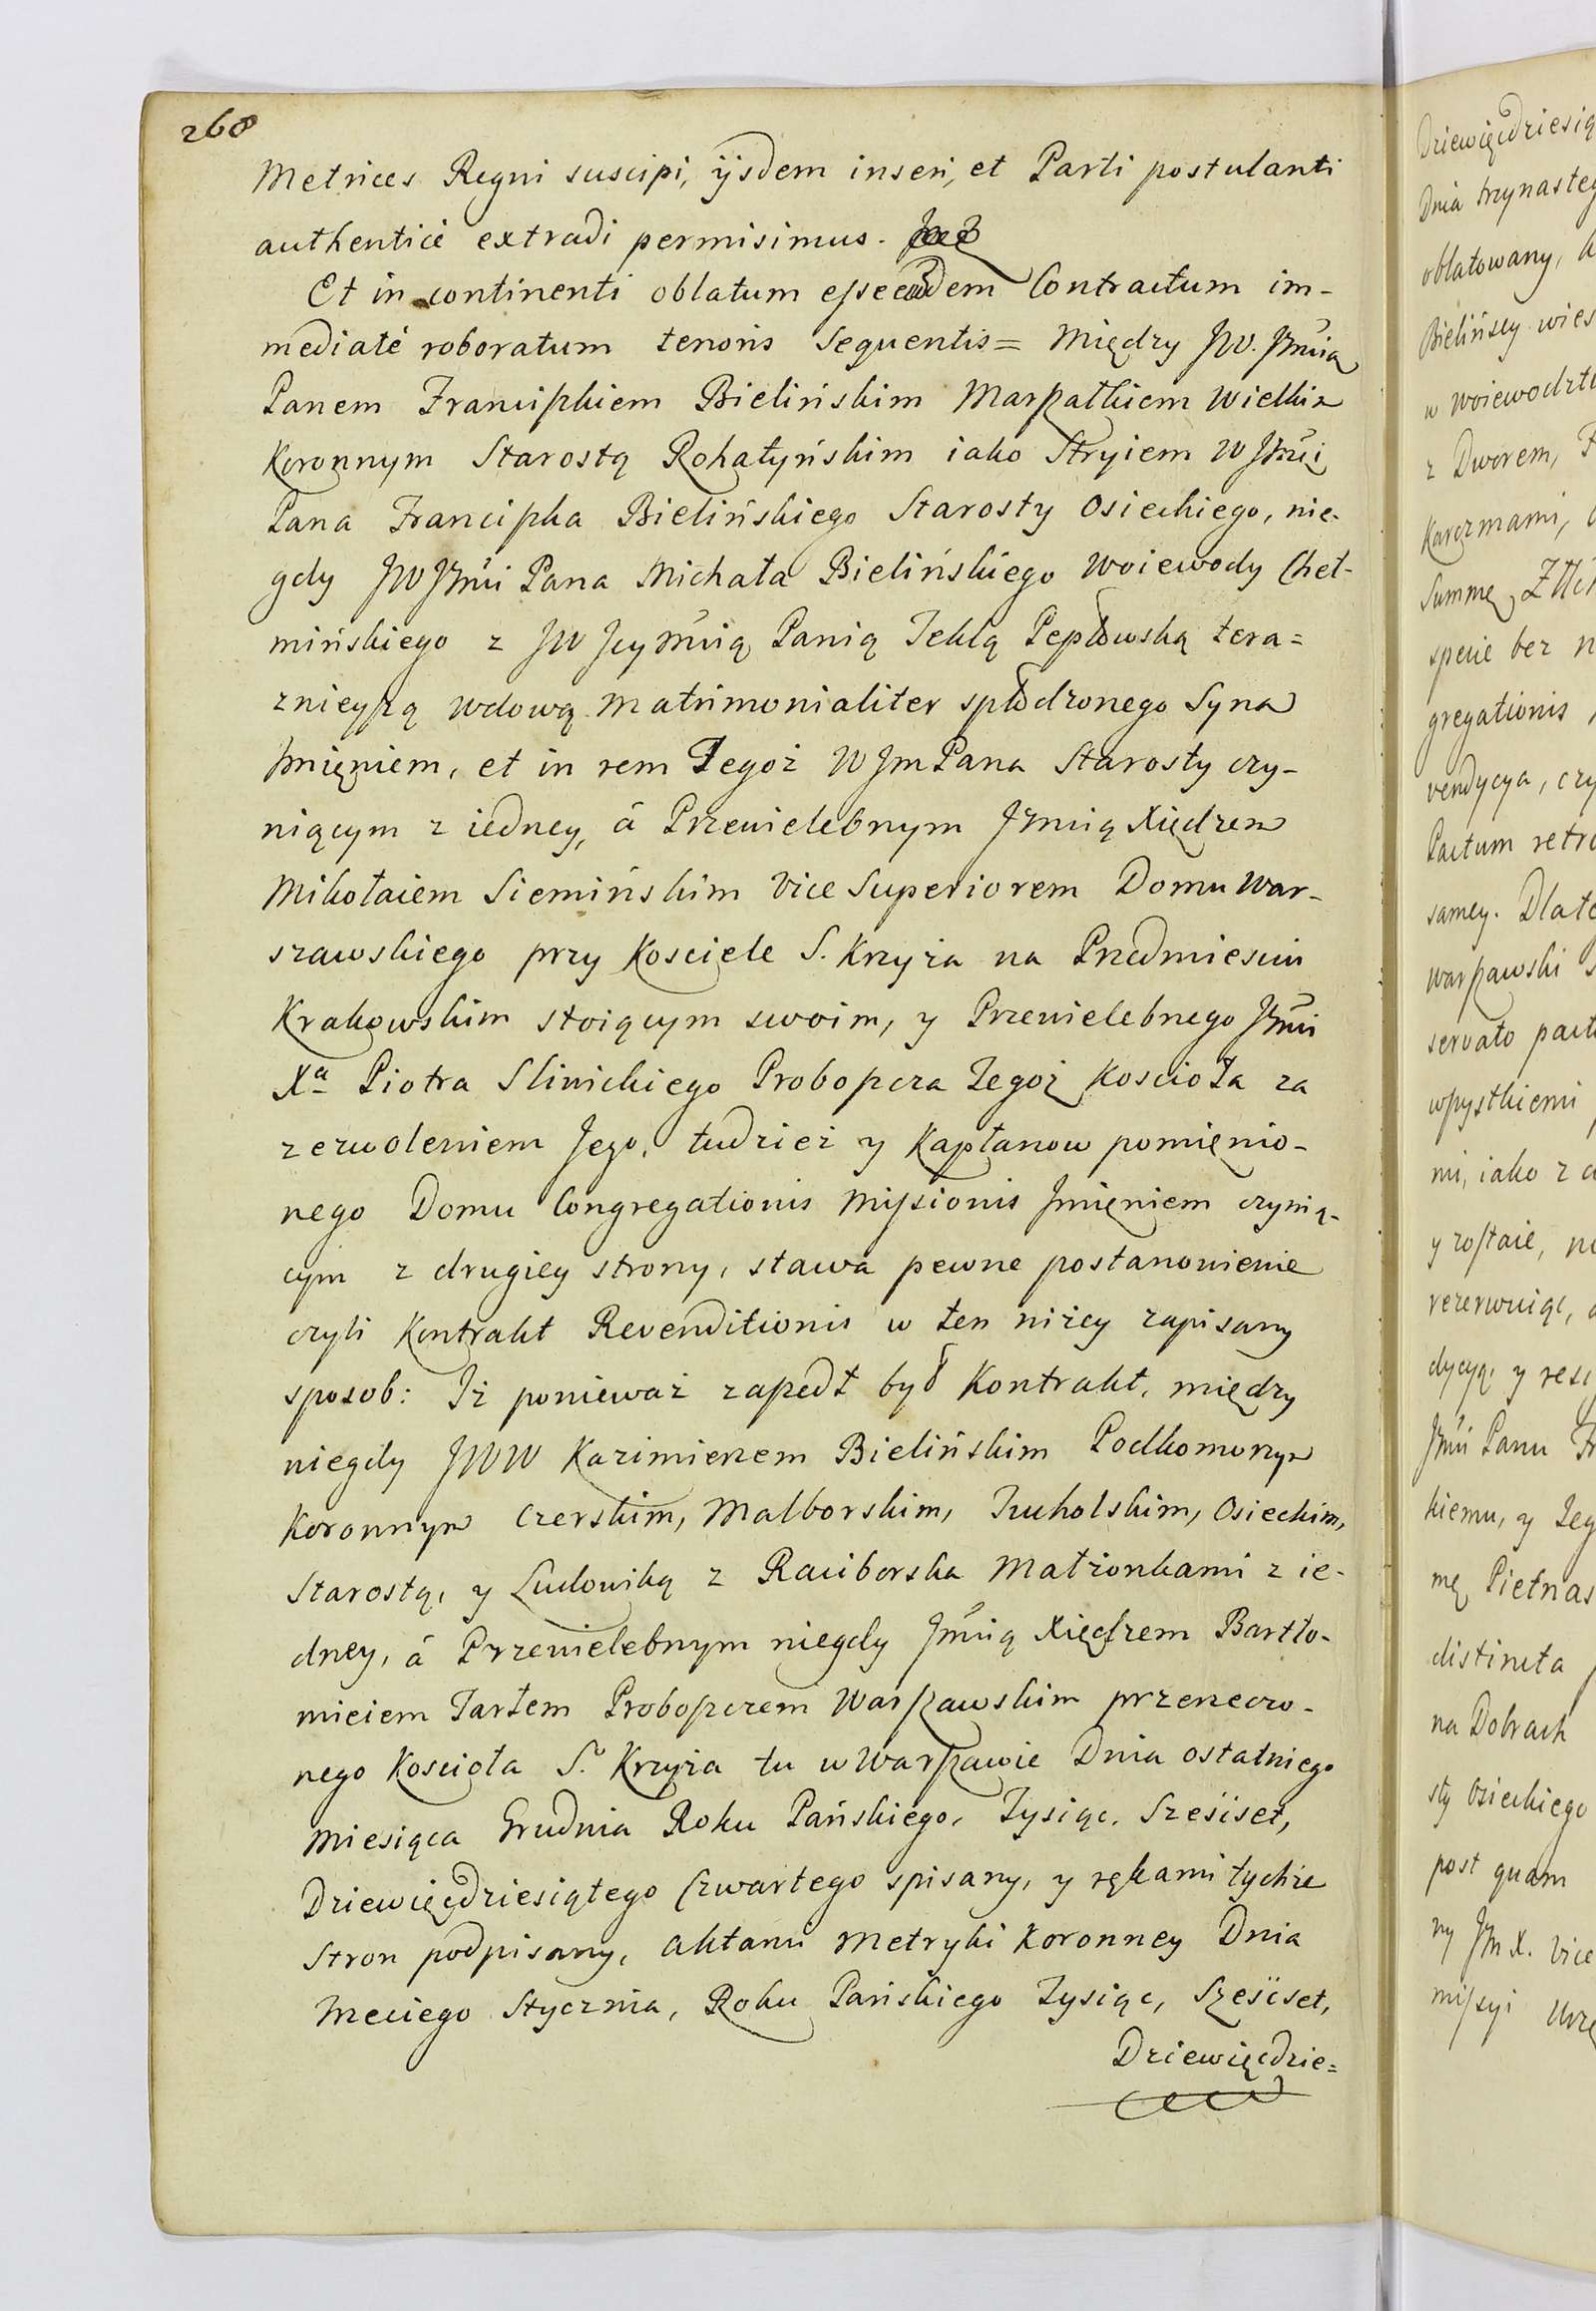 268
Metrices Regni suscipi, ijsdem inseri, et Parti postulanti
authenticè extradi permisimus.
Et in continenti oblatum esse eundem Contractum im-
mediatè roboratum tenoris Sequentis = Między JW. Jmćią
Panem Franciszkiem Bielińskim Marszałkiem Wielkim
Koronnym Starostą Rohatyńskim iako Stryiem W Jmći
Pana Franciszka Bielińskiego Starosty Osieckiego, nie-
gdy JW Jmći Pana Michała Bielińskiego Woiewody Cheł-
mińskiego z JW Jeymćią Panią Teklą Pepłowską tera=
znieyszą wdową matrimonialiter spłodzonego Syna
Jmięniem, et in rem Tegoż W Jm Pana Starosty czy-
niącym z iedney, á Przewielebnym Jmcią Xiędzem
Mikołaiem Siemińskim Vice Superiorem Domu War-
szawskiego przy Kosciele S. Krzyża na Przedmiesciu
Krakowskim stoiącym swoim, y Przewielebnego Jmći
Xa Piotra Sliwickiego Proboszcza Tegoż Koscioła za
zezwoleniem Jego, tudzież y Kapłanow pomięnio-
nego Domu Congregationis Missionis Jmięniem czynią-
cym z drugiey strony, stawa pewne postanowienie
czyli Kontrakt Revenditionis w ten niżey zapisany
sposob: Iż ponieważ zaszedł był Kontrakt, między
niegdy JWW Kazimierzem Bielińskim Podkomorzym
Koronnym Czerskim, Malborskim, Tucholskim, Osieckim,
Starostą, y Ludowiką z Raciborska Małżonkami z ie-
dney, á Przewielebnym niegdy Jmćią Xiędzem Bartło-
mieiem Tarłem Proboszczem Warszawskim przerzeczo-
nego Koscioła S. Krzyża tu w Warszawie Dnia ostatniego
Miesiąca Grudnia Roku Pańskiego, Tysiąc, Sześćset,
Dziewięćdziesiątego Czwartego spisany, y rękami tychże
Stron podpisany, Aktami Metryki Koronney Dnia
Trzeciego Stycznia, Roku Pańskiego Tysiąc, Sześćset,
Dziewięćdzie=
Dziewięćdziesią
Dnia trzynasteg
oblatowany,
Bielińscy wies
w Woiewodzt
z Dworem,
Karczmami,
Summę Złł
specie bez
gregationis
vendycya, czy
Pactum retro
samey. Dlate
Warszawski
servato pact
wszystkiemi
mi, iako z
y zostaie,
rezerwuiąc,
dycyą y
Jmći Panu
kiemu, y Teg
mę Pietnas
distincta
na Dobrach
sty Osieckiego
post quam
ny Jm X. Vice
missyi